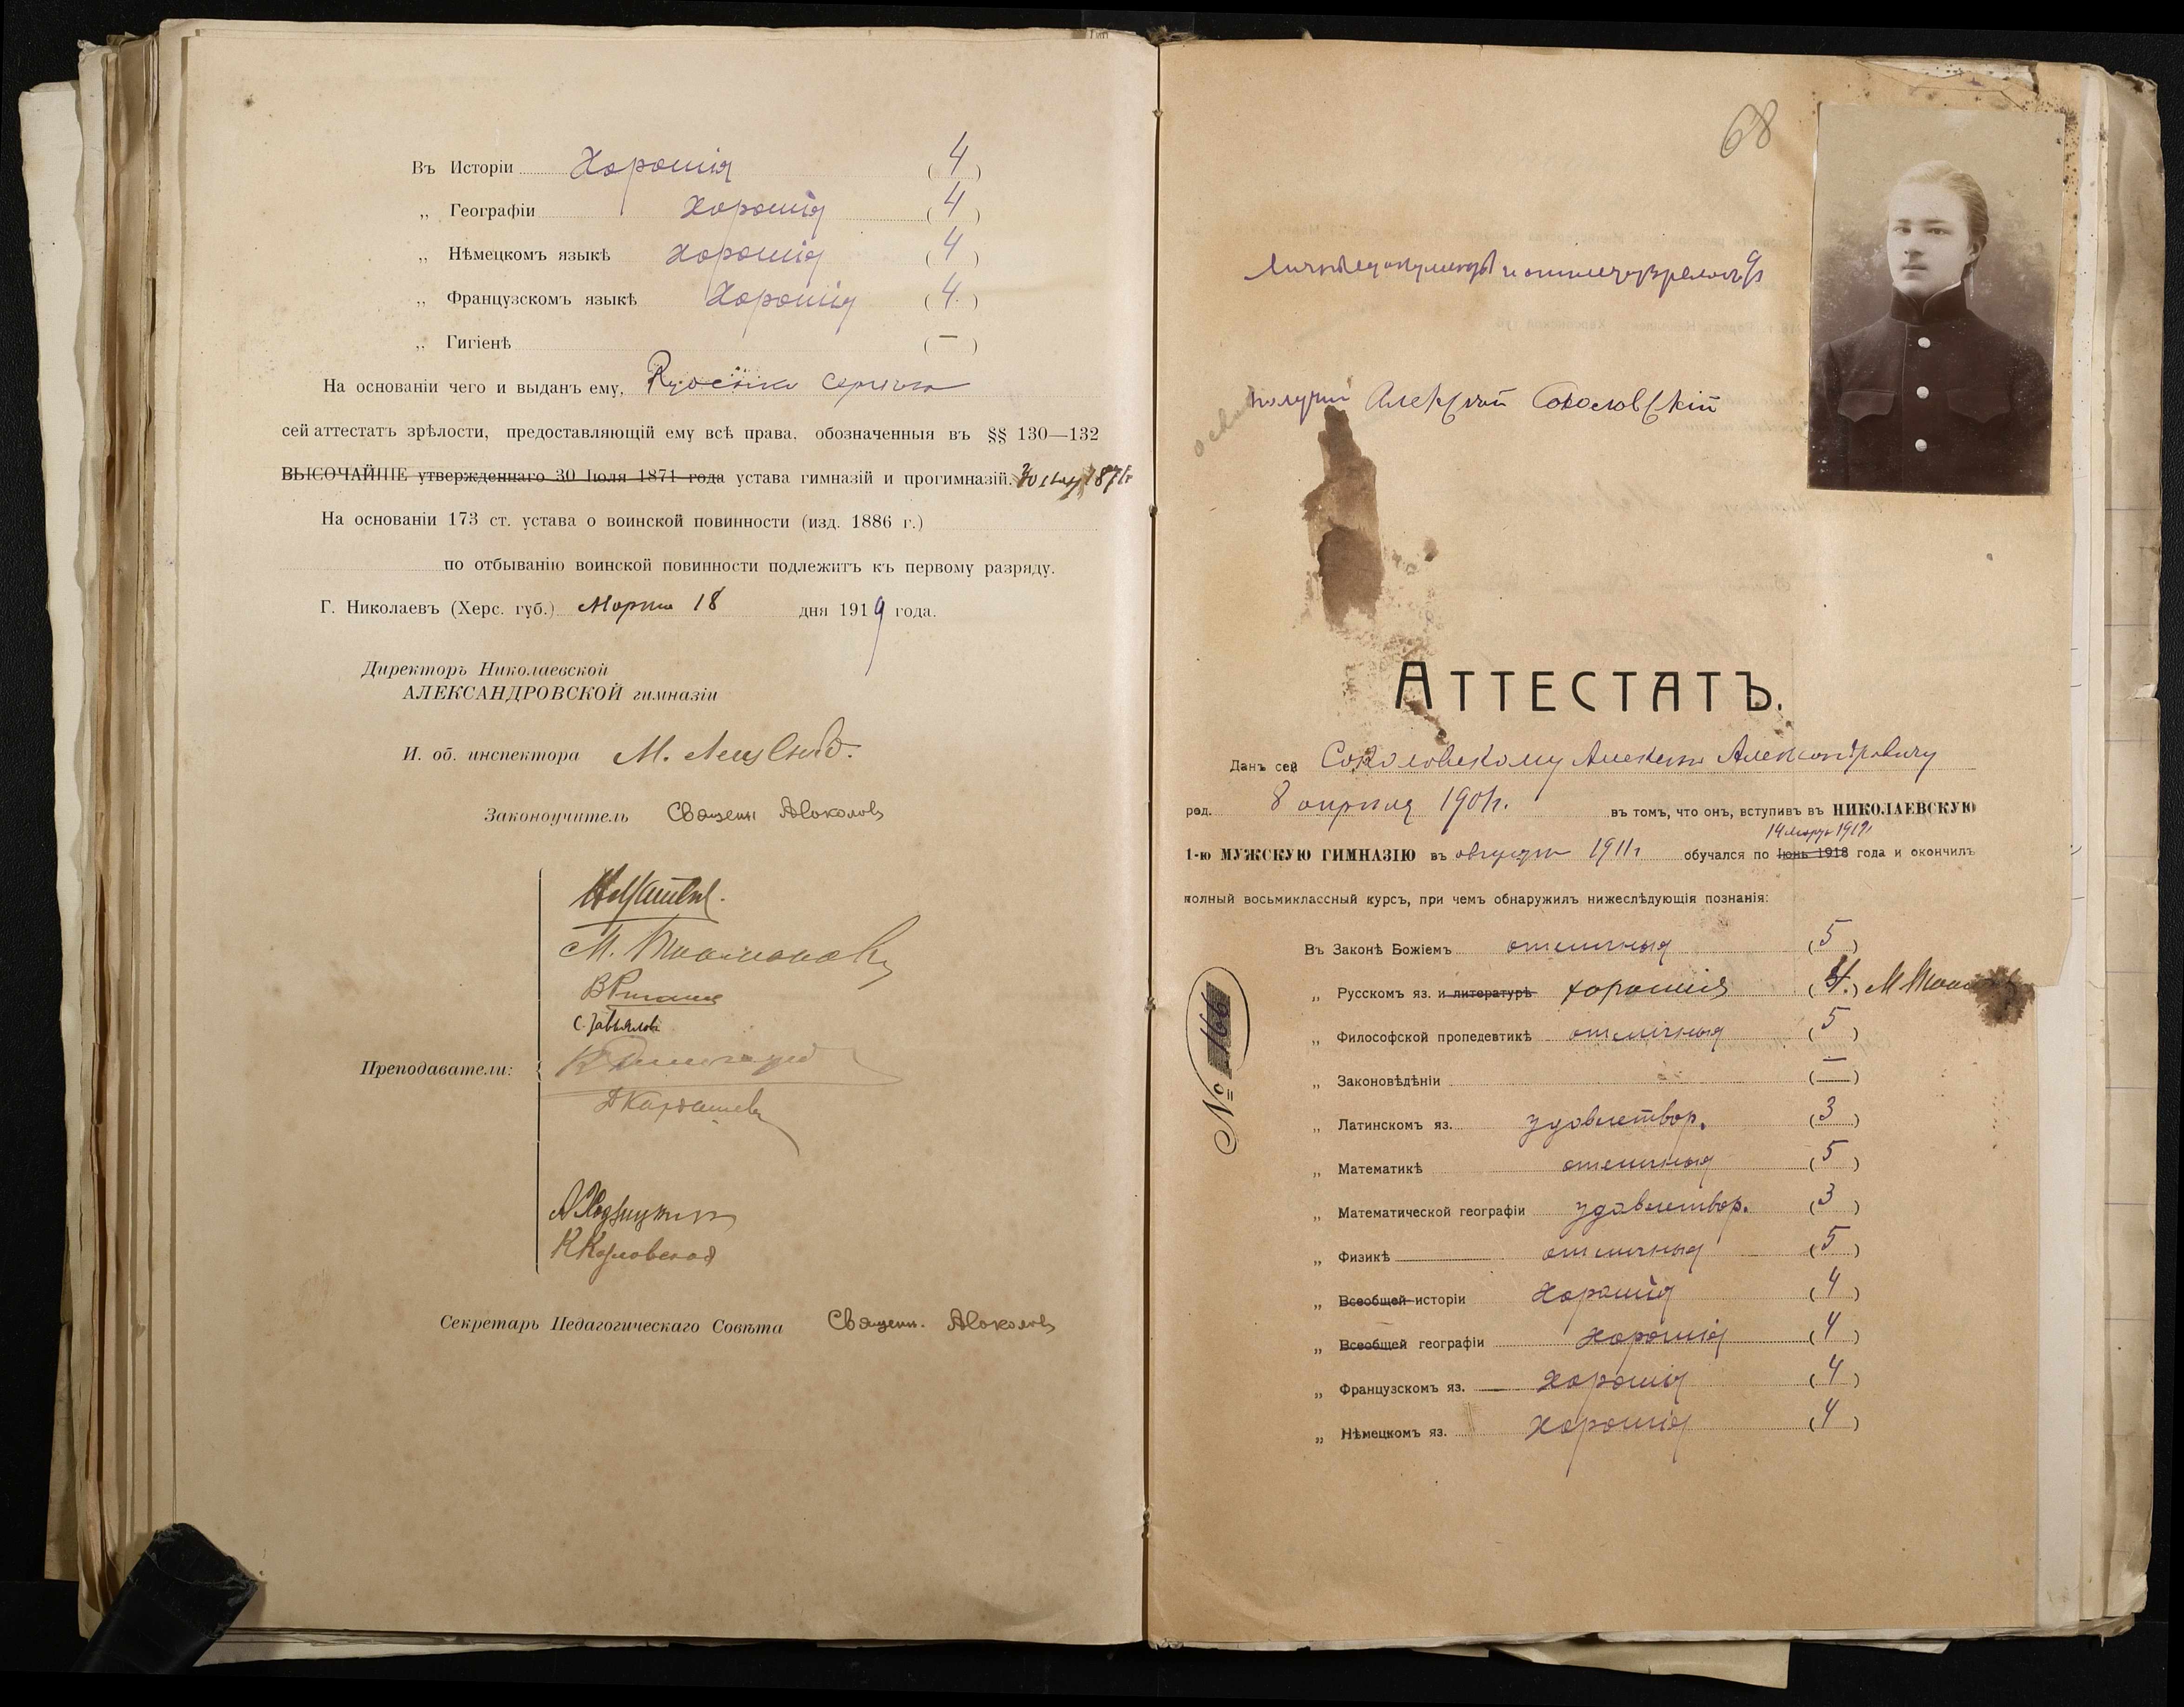 Въ Исторіи Хорошія (4)
„ Географіи Хорошія (4)
„ Нѣмецкомъ языкѣ Хорошія (4)
„ Французскомъ языкѣ Хорошія (4)
„ Гигіенѣ (—)
На основаніи чего и выданъ ему,
сей аттестатъ зрѣлости, предоставляющій ему всѣ права, обозначенныя въ §§ 130—132
ВЫСОЧАЙШЕ утвержденнаго 30 Іюля 1871 года устава гимназій и прогимназій.
На основаніи 173 ст. устава о воинской повинности (изд. 1886 г.)
по отбыванію воинской повинности подлежитъ къ первому разряду.
Г. Николаевъ (Херс. губ.) Марта 18 дня 1919 года.
Директоръ Николаевской
АЛЕКСАНДРОВСКОЙ гимназіи
И. об. инспектора
Законоучитель Священ.
Преподаватели:
Секретарь Педагогическаго Совѣта Священ.
68
получил Алексѣй Соколовскій
АТТЕСТАТЪ.
Данъ сей Соколовскому Алексѣю Александровичу
род. 8 апрѣля 1901г. въ томъ, что онъ, вступивъ въ НИКОЛАЕВСКУЮ
14 марта 1919
1-ю МУЖСКУЮ ГИМНАЗІЮ въ августѣ 1911г обучался по Іюнь 1918 года и окончилъ
полный восьмиклассный курсъ, при чемъ обнаружилъ нижеслѣдующія познанія:
Въ Законѣ Божіемъ отличныя (5)
„ Русскомъ яз. и литературѣ хорошія (4.)
„ Философской пропедевтикѣ отличныя (5)
„ Законовѣдѣніи (—)
„ Латинскомъ яз. удовлетвор. (3)
„ Математикѣ отличныя (5)
„ Математической географіи удовлетвор. (3)
„ Физикѣ отличныя (5)
„ Всеобщей исторіи Хорошія (4)
„ Всеобщей географіи Хорошія (4)
„ Французскомъ яз. Хорошія (4)
„ Нѣмецкомъ яз. Хорошія (4)
№ 166